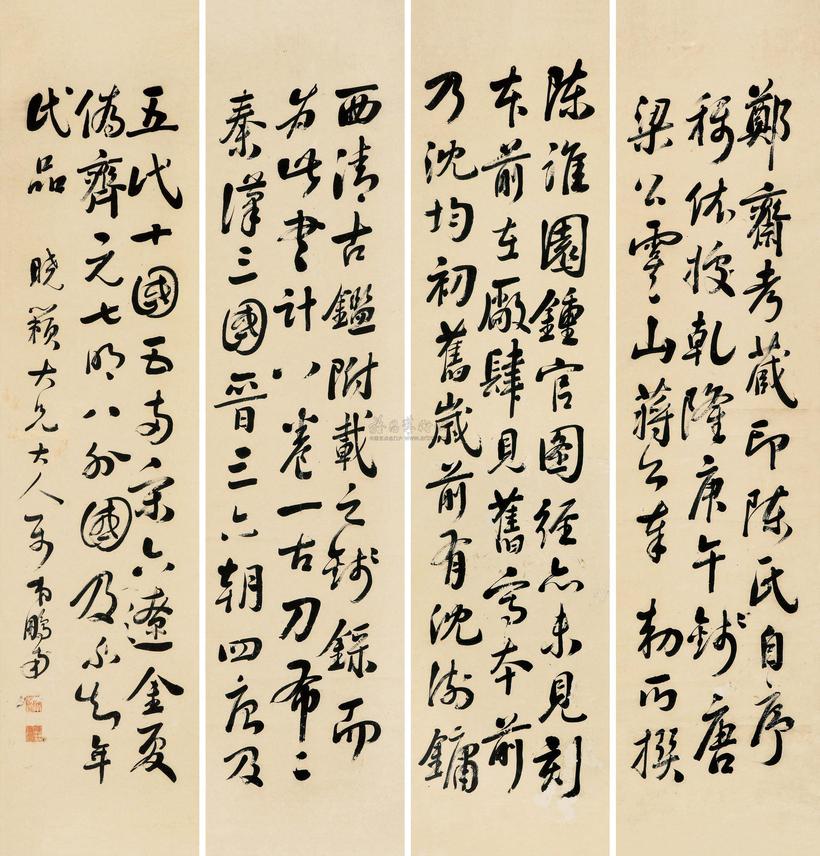 鄭齋考藏印陳氏自序
稱依據乾隆庚午錢唐
梁公雪山蔣公奉勑所撰
陳淮園鍾官圖徑亦未見刻
本前在廠肆見舊寫本前
乃沈均初舊歲前有沈 鏞
西清古鑑附載之錢錄而
為此書計八卷一古刀布二
秦漢三國晉三六朝四唐及
五代十國五南宋六遼金夏
偽齊元七明八外國及不知年
代品
曉籟大兄大人